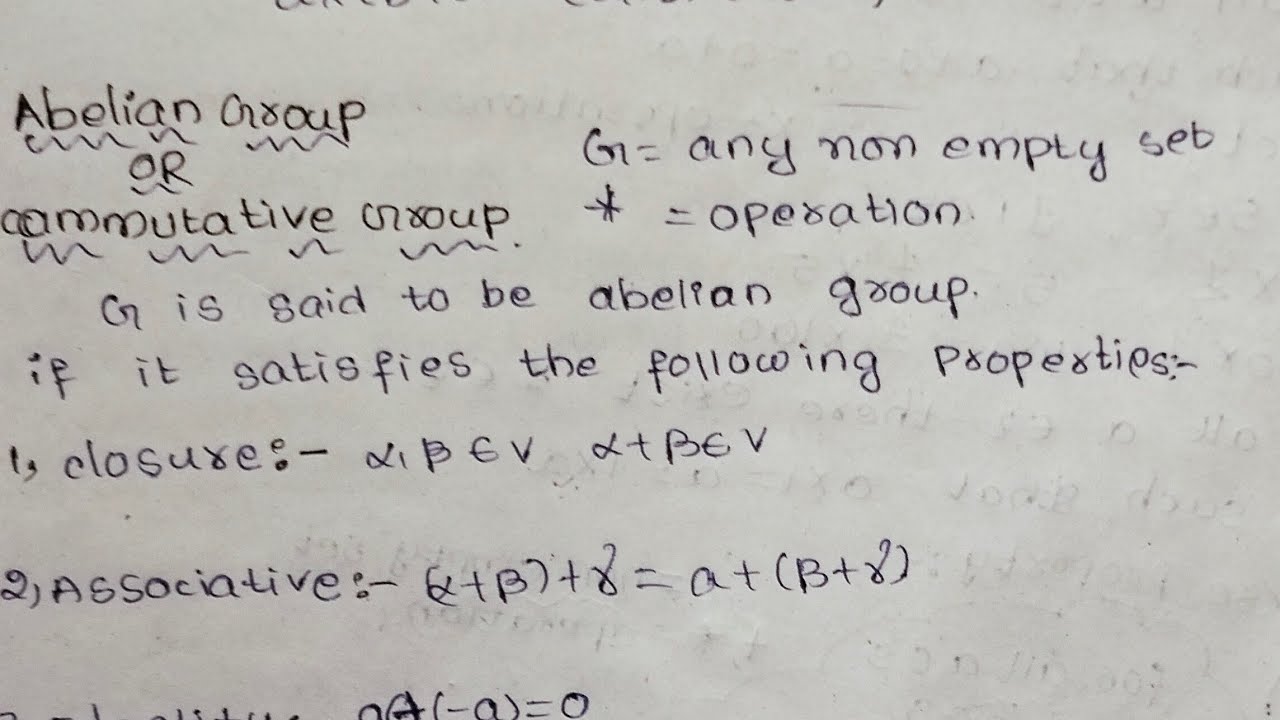 Abelian Group
OR
commutative Group.
G = any non empty set
* = operation.
G is said to be abelian group.
if it satisfies the following properties:-
1, closure:- α, β ∈ V α+β ∈ V
2, Associative:- (α+β)+γ = a+(β+γ)
(-a)=0